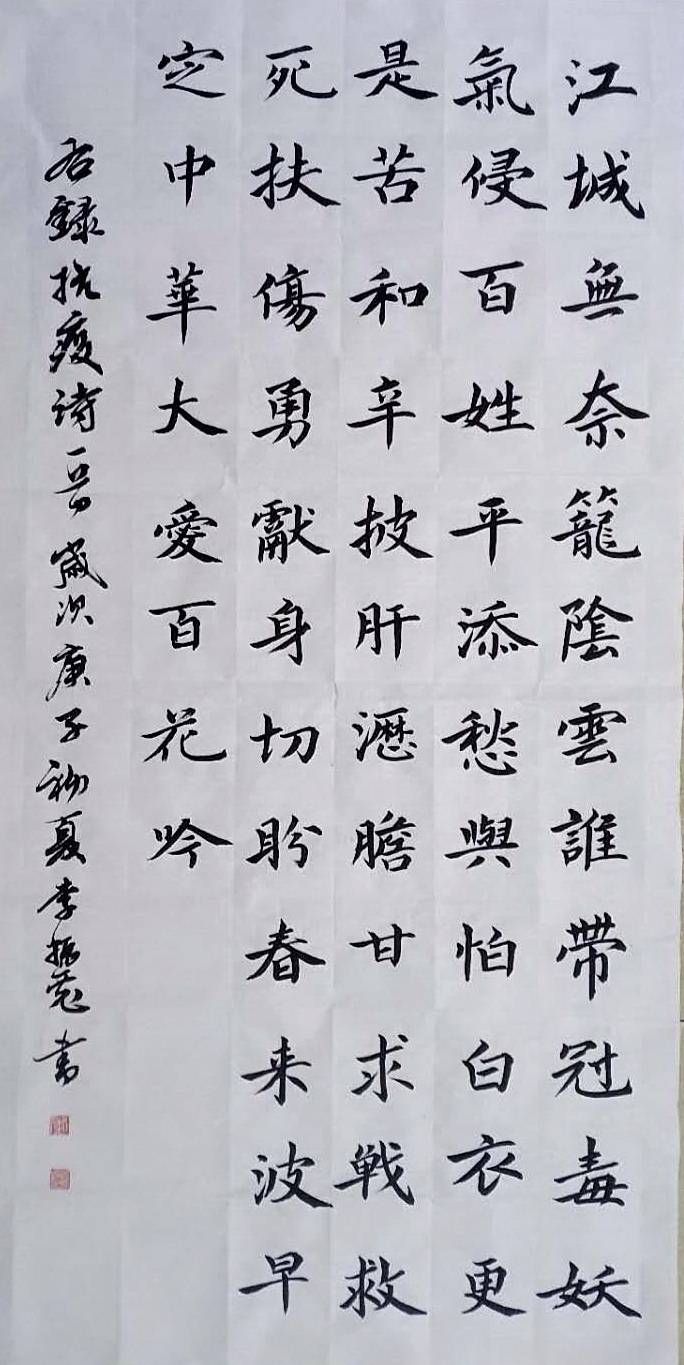 江城無奈籠陰雲誰帶冠毒妖
氣侵百姓平添愁與怕白衣更
是苦和辛披肝瀝膽甘求戦救
死扶傷勇獻身切盼春来波早
定中華大愛百花吟
右錄抗疫诗一首歲次庚子初夏李振范書